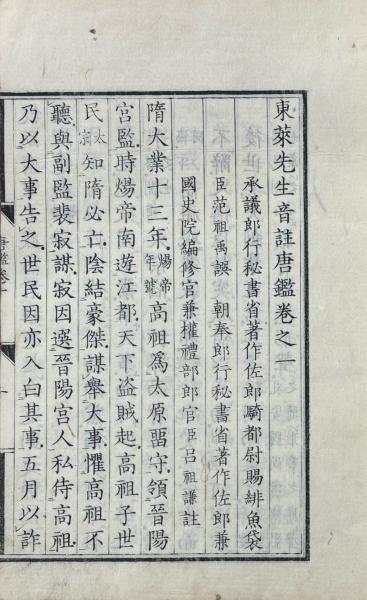 東萊先生音註唐鑑卷之一
承議郎行秘書省著作佐郎騎都尉賜緋魚袋
臣范祖禹譔 朝奉郎行秘書省著作佐郎兼
國史院編修官兼權禮部郎官臣呂祖謙註
隋大業十三年煬帝年號高祖爲太原畱守領晉陽
宮監時煬帝南遊江都天下盜賊起高祖子世
民太宗知隋必亡陰結豪傑謀舉大事懼高祖不
聽與副監裴寂謀寂因選晉陽宮人私侍高祖
乃以大事告之世民因亦入白其事五月以詐
唐鑑卷一
一